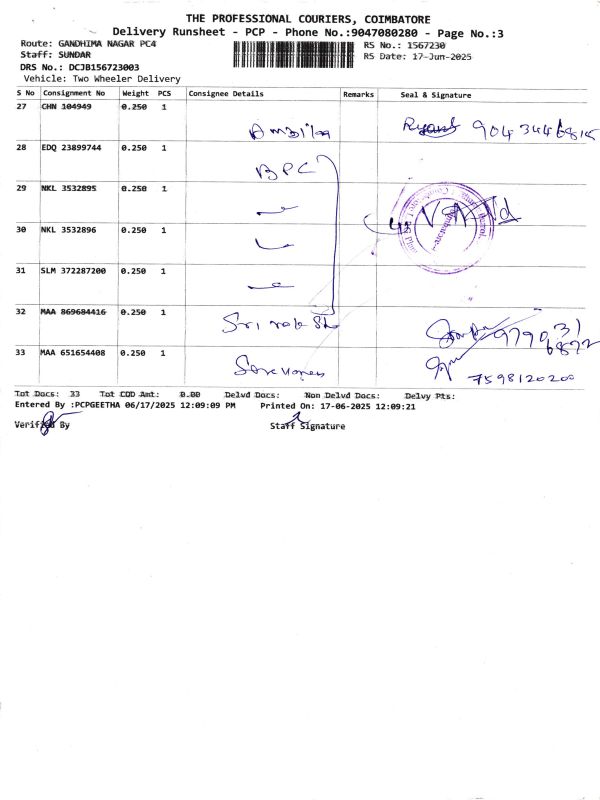 THE PROFESSIONAL COURIERS, COIMBATORE
Delivery Runsheet - PCP - Phone No.:9047080280 - Page No.:3
Route: GANDHIMA NAGAR PC4
RS No.: 1567230
Staff: SUNDAR
RS Date: 17-Jun-2025
DRS No.: DCJB156723003
Vehicle: Two Wheeler Delivery
S No Consignment No Weight PCS Consignee Details Remarks Seal & Signature
27 CHN 104949 0.250 1
28 EDQ 23899744 0.250 1 BPC
29 NKL 3532895 0.250 1
30 NKL 3532896 0.250 1
31 SLM 372287200 0.250 1
32 MAA 869684416 0.250 1 Sri
33 MAA 651654408 0.250 1 7598120200
Tot Docs: 33 Tot COD Amt: 0.00 Delvd Docs: Non Delvd Docs: Delvy Pts:
Entered By :PCPGEETHA 06/17/2025 12:09:09 PM Printed On: 17-06-2025 12:09:21
Verified By Staff Signature